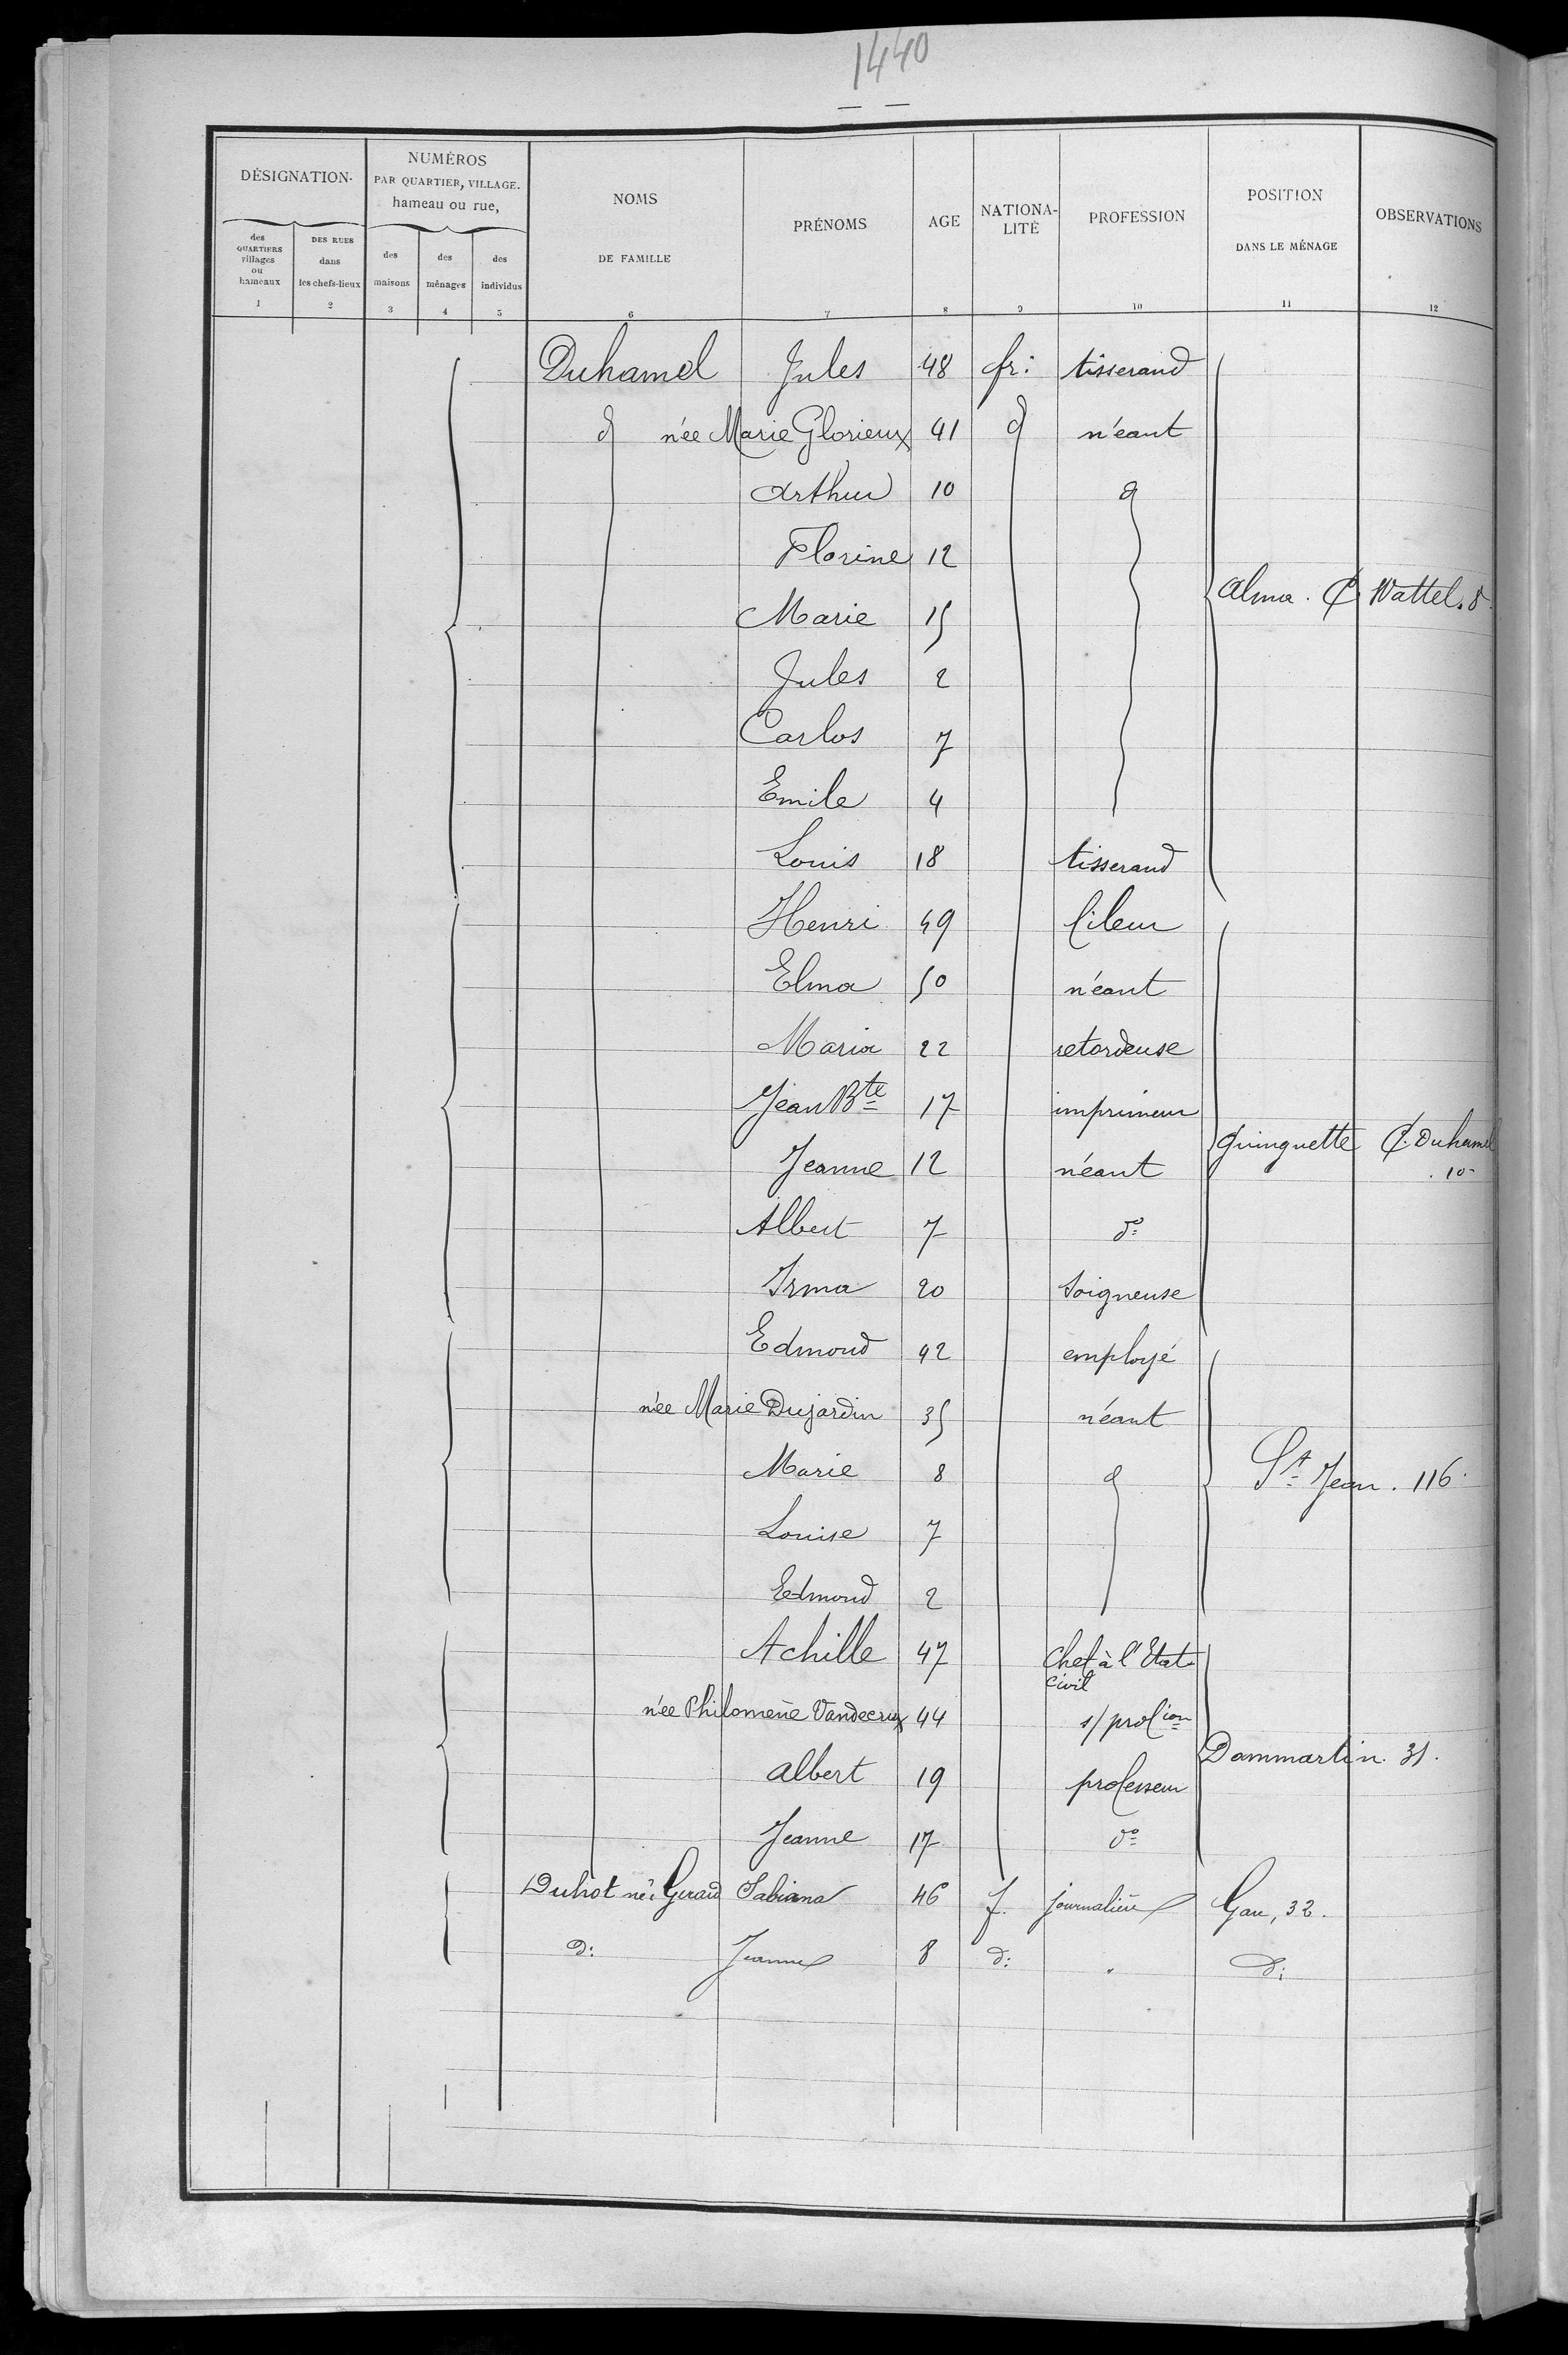 1440
DÉSIGNATION.
NUMÉROS
PAR QUARTIER, VILLAGE.
hameau ou rue,
NOMS
DE FAMILLE
PRÉNOMS
AGE
NATIONA-
LITÉ
PROFESSION
POSITION
DANS LE MÉNAGE
OBSERVATIONS
des
QUARTIERS
villages
ou
hameaux
DES RUES
dans
les chefs-lieux
des
maisons
des
ménages
des
individus
1 2 3 4 5 6 7 8 9 10 11 12
Duhamel Jules 48 fr: tisserand
d née Marie Glorieux 41 d néant
Arthur 10 d
Florine 12
Alma. C. Wattel. 8
Marie 15
Jules 2
Carlos 7
Emile 4
Louis 18 tisserand
Henri 49 fileur
Elma 50 néant
Maria 22 retordeuse
Jean Bte 17 imprimeur
Guinguette C. Duhamel
10
Jeanne 12 néant
Albert 7 do
Irma 20 soigneuse
Edmond 42 employé
née Marie Dujardin 35 néant
Marie 8 d St Jean. 116
Louise 7
Edmond 2
Achille 47 Chef à l'Etat
civil
née Philomène Vandecrux 44 s/ profion
Dammartin. 31.
Albert 19 professeur
Jeanne 17 do
Duhot née Gerard Sabiana 46 f. journalière Gau, 32.
d: Jeanne 8 d: " d: